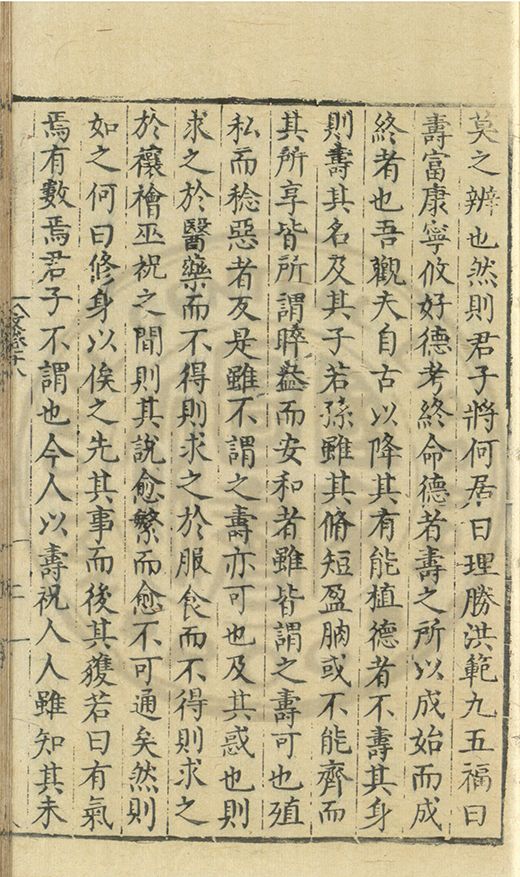 莫之辨也然則君子將何居曰理勝洪範九五福曰
壽富康寧攸好德考終命德者壽之所以成始而成
終者也吾觀夫自古以降其有能植德者不壽其身
則壽其名及其子若孫雖其脩短盈朒或不能齊而
其所享皆所謂睟盎而安和者雖皆謂之壽可也殖
私而稔惡者反是雖不謂之壽亦可也及其惑也則
求之於醫藥而不得則求之於服食而不得則求之
於禳禬巫祝之間則其說愈繁而愈不可通矣然則
如之何曰修身以俟之先其事而後其獲若曰有氣
焉有數焉君子不謂也今人以壽祝人人雖知其未